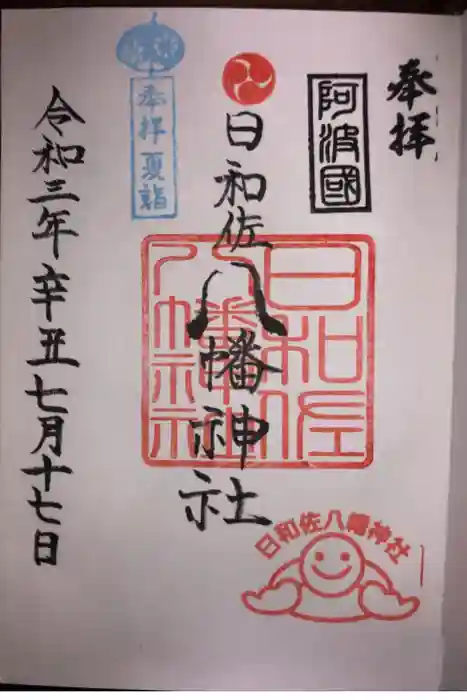 奉拝
阿波國
日和佐八幡神社
日和佐
八幡神社
日和佐八幡神社
奉拝夏詣
令和三年辛丑七月十七日